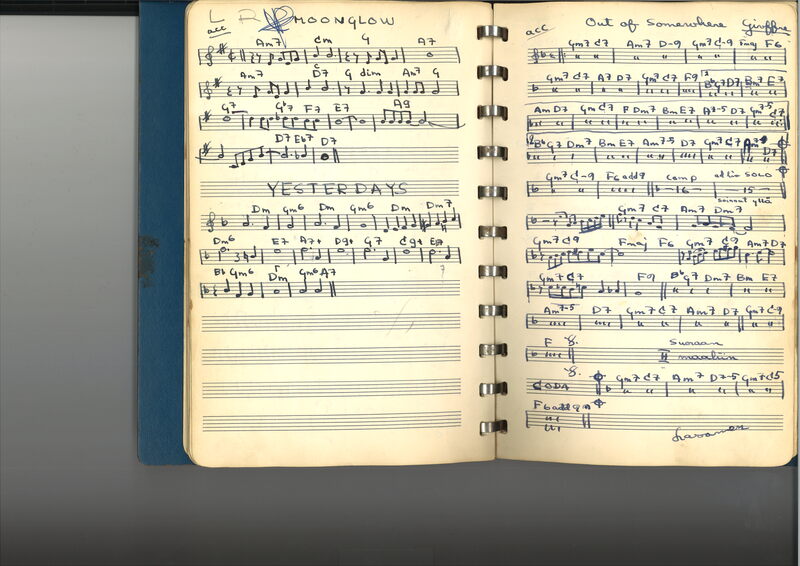 L R MOONGLOW
acc
Am7 Cm G A7
Am7 D7 G dim Am7 G
G7 Gb7 F7 E7 A9
D7 Eb7 D7
YESTERDAYS
Dm Gm6 Dm Gm6 Dm Dm7
Dm6 E7 A7+ D9+ G7 C9+ E7
Bb Gm6 Dm Gm6 A7
acc Out of Somewhere Giuffre
Gm7 C7 Am7 D-9 Gm7 C-9 Fmaj F6
Gm7 C7 A7 D7 Gm7 C7 F9 Bb G7 D7 Bm7 E7
Am D7 Gm C7 F Dm7 Bm E7 A7-5 D7 Gm7-5 C7
Bb G7 Dm7 Bm E7 Am7-5 D7 Gm7 C7 Am7 D7
Gm7 C-9 F6 add9 comp ad lib SOLO
16 15
Gm7 C7 Am7 Dm7
Gm7 C9 Fmaj F6 Gm7 C9 Am7 D7
Gm7 C7 F9 Bb G7 Dm7 Bm E7
Am7-5 D7 Gm7 C7 Am7 D7 Gm7 C-9
F Suoraan
II maaliin
CODA Gm7 C7 Am7 D7-5 Gm7 C5
F6 add9